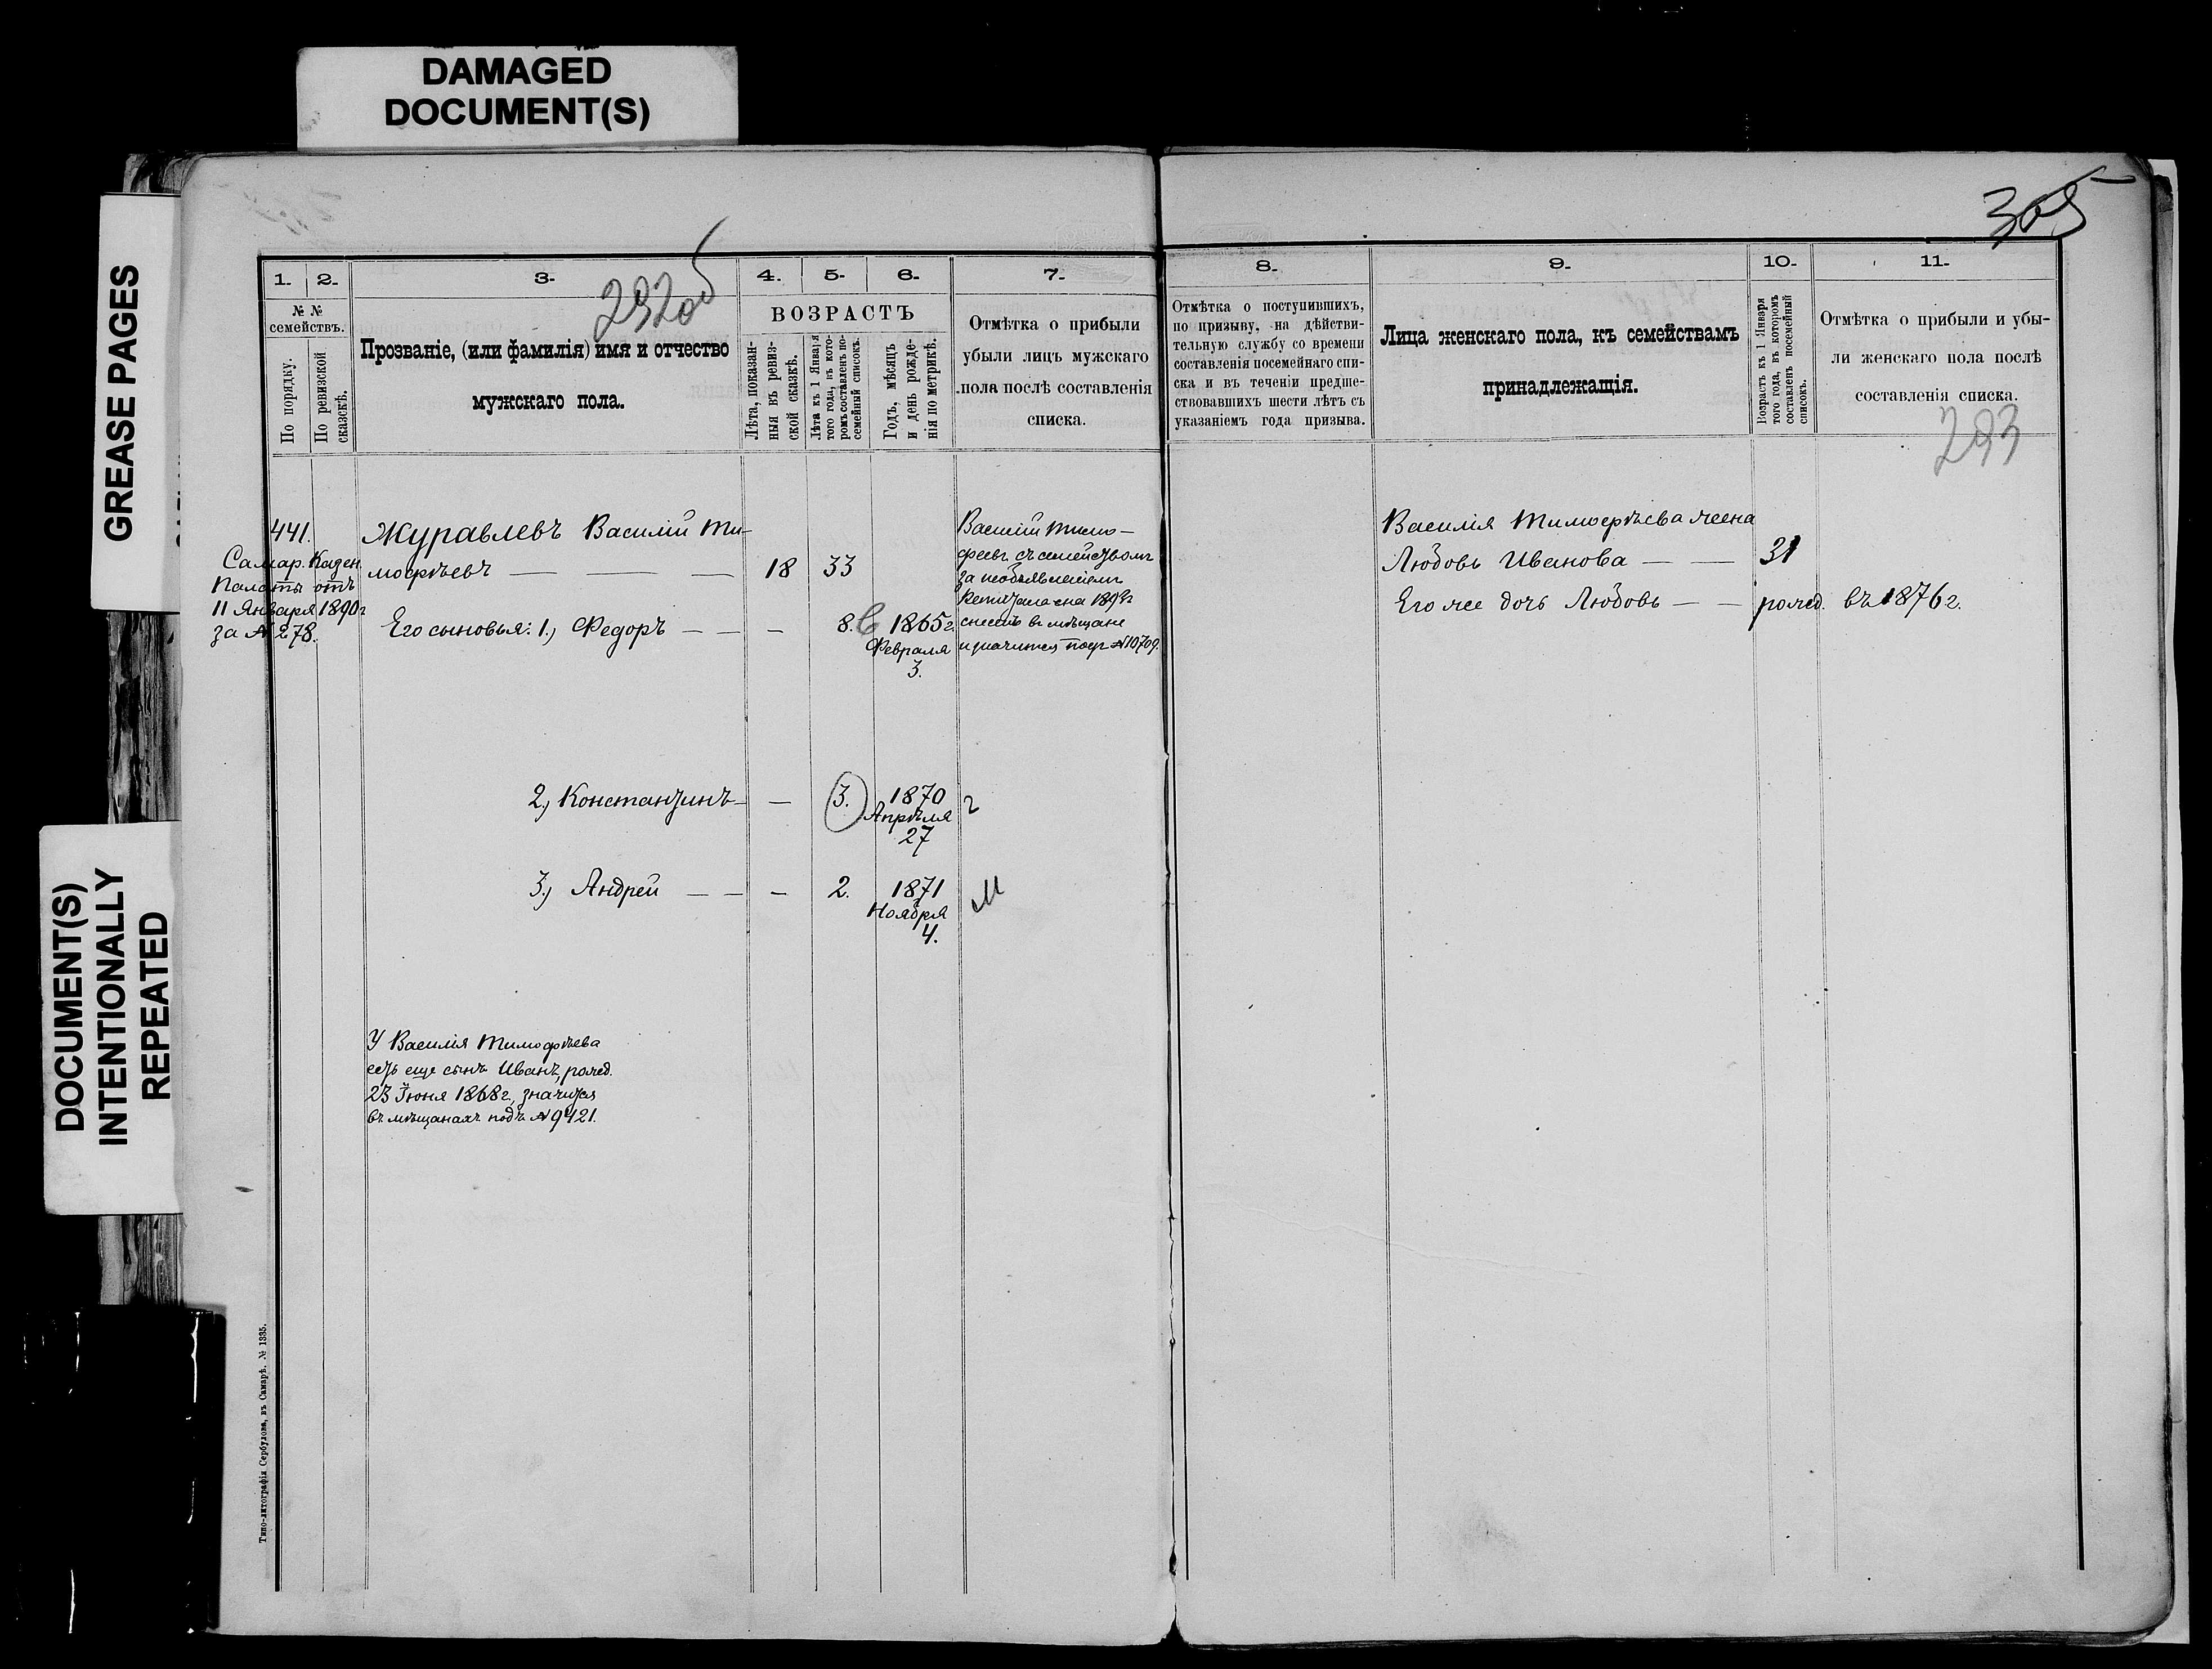 DAMAGED
DOCUMENT(S)
GREASE PAGES
DOCUMENT(S)
INTENTIONALLY
REPEATED
305
292об
1.
2.
3.
4.
5.
6.
7.
№ №
семействъ.
По порядку.
По ревизской
сказкѣ.
Прозваніе, (или фамилія) имя и отчество
мужскаго пола.
ВОЗРАСТЪ
Лѣта, показан-
ныя въ ревиз-
ской сказкѣ.
Лѣта къ 1 Января
того года, въ кото-
ромъ составленъ по-
семейный списокъ.
Годъ, мѣсяцъ
и день рожде-
нія по метрикѣ.
Отмѣтка о прибыли
убыли лицъ мужскаго
пола послѣ составленія
списка.
8.
9.
10.
11.
Отмѣтка о поступившихъ,
по призыву, на дѣйстви-
тельную службу со времени
составленія посемейнаго спи-
ска и въ теченіи предше-
ствовавшихъ шести лѣтъ съ
указаніемъ года призыва.
Лица женскаго пола, къ семействамъ
принадлежащія.
Возрастъ къ 1 Января
того года, въ которомъ
составленъ посемейный
списокъ.
Отмѣтка о прибыли и убы-
ли женскаго пола послѣ
составленія списка.
293
441.
Самар. Казен.
Палаты отъ
11 Января 1890г
за № 278.
Журавлевъ Василій Ти-
мофѣевъ — — — 18 33
Его сыновья: 1.) Федоръ — — — 8. 1865г.
Февраля
3.
Василій Тимо-
феевъ съ семействомъ
за необъявленіемъ
капитала на 1893г
снесенъ въ мѣщане
и значится подъ №10709.
2.) Константинъ — — 3. 1870
Апрѣля
27
3.) Андрей — — — 2. 1871
Ноября
4.
У Василія Тимофѣева
есть еще сынъ Иванъ, рожд.
23 Іюня 1868г., значится
въ мѣщанахъ подъ №9421.
Василія Тимофѣева жена
Любовь Иванова — — 31
Его же дочь Любовь — — рожд. въ 1876г.
Типо-литографія Сербулова, въ Самарѣ. № 1335.